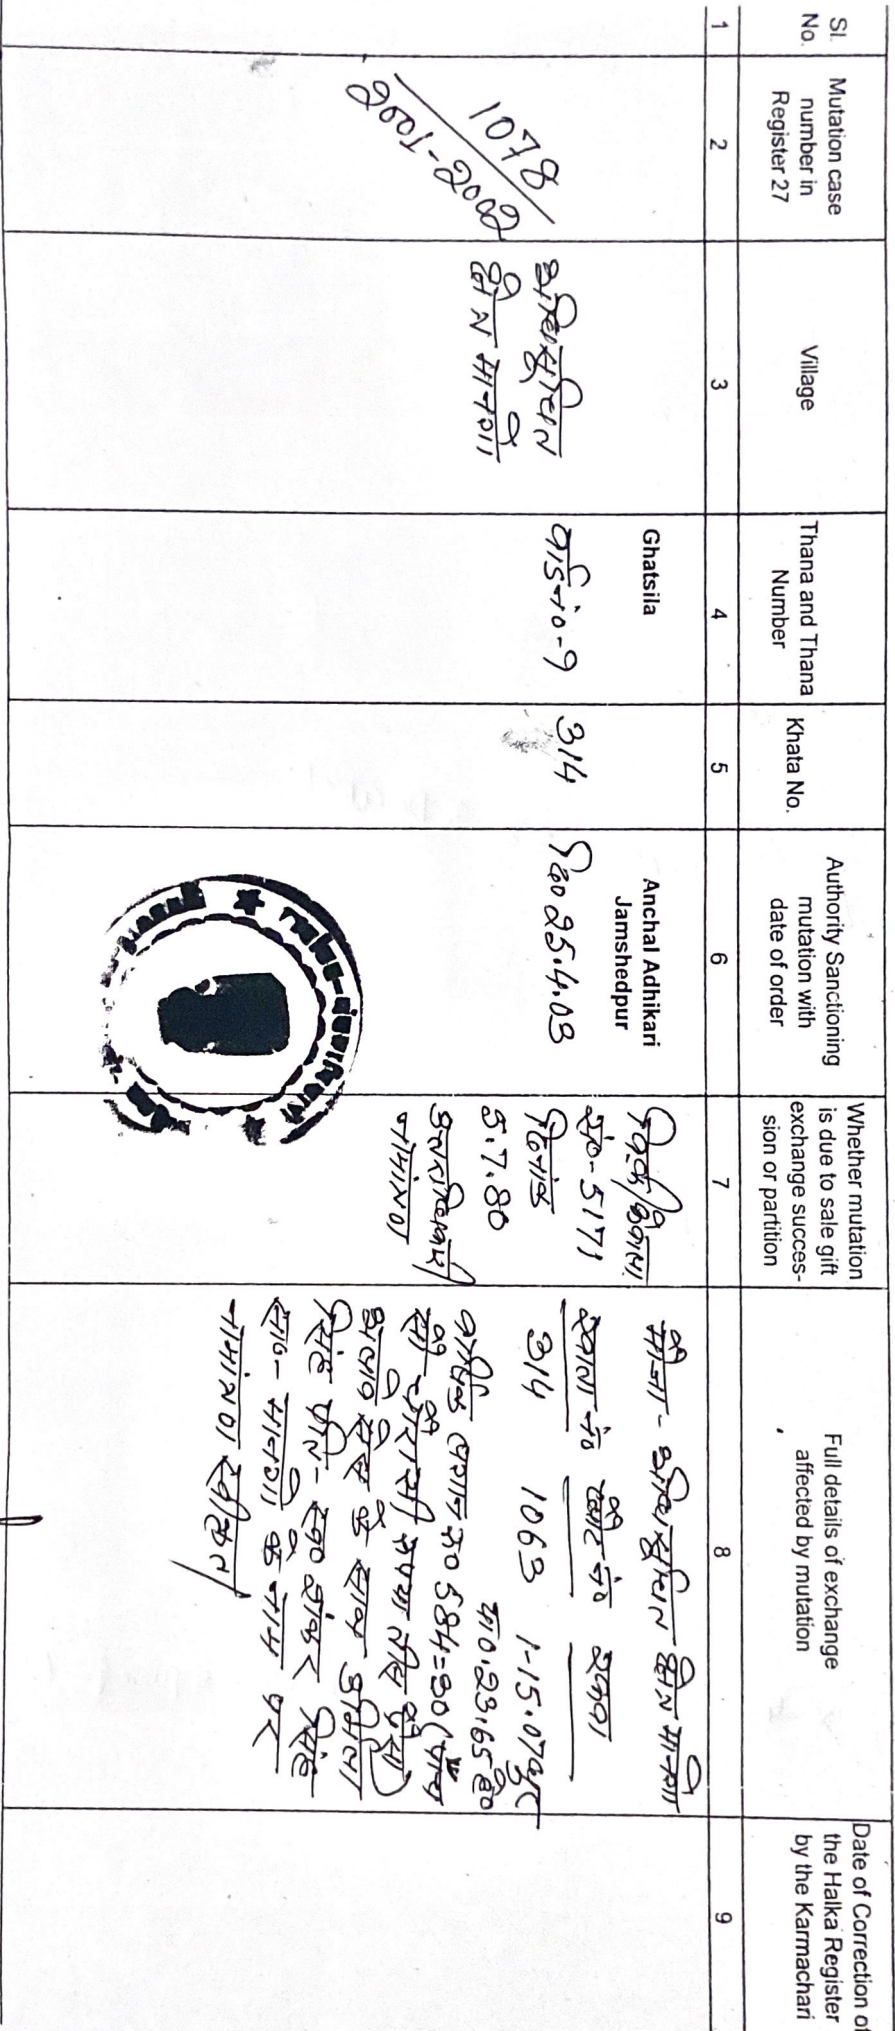 Sl. No.
Mutation case number in Register 27
Village
Thana and Thana Number
Khata No.
Authority Sanctioning mutation with date of order
Whether mutation is due to sale gift exchange succes-sion or partition
Full details of exchange affected by mutation
Date of Correction of the Halka Register by the Karmachari
1
2
3
4
5
6
7
8
9
1078
2001-2002
अधिसूचित
क्षेत्र मानगो
Ghatsila
वार्ड नं०-9
314
Anchal Adhikari
Jamshedpur
दि० 25.4.03
सं०-5171
दिनांक
5.7.80
उत्तराधिकारी
नामांतरण
मौजा- अधिसूचित क्षेत्र मानगो
खाता नं० प्लॉट नं० रकवा
314 1063 1-15.07 धुर
मा०.23.65 हे०
वार्षिक लगान रु० 584=30 (पाँच
सौ चौरासी रुपया तीस पैसा)
अलावे सेस के साथ उर्मिला
सिंह पति- स्व० शंकर सिंह
सा०- मानगो के नाम पर
नामांतरण स्वीकृत